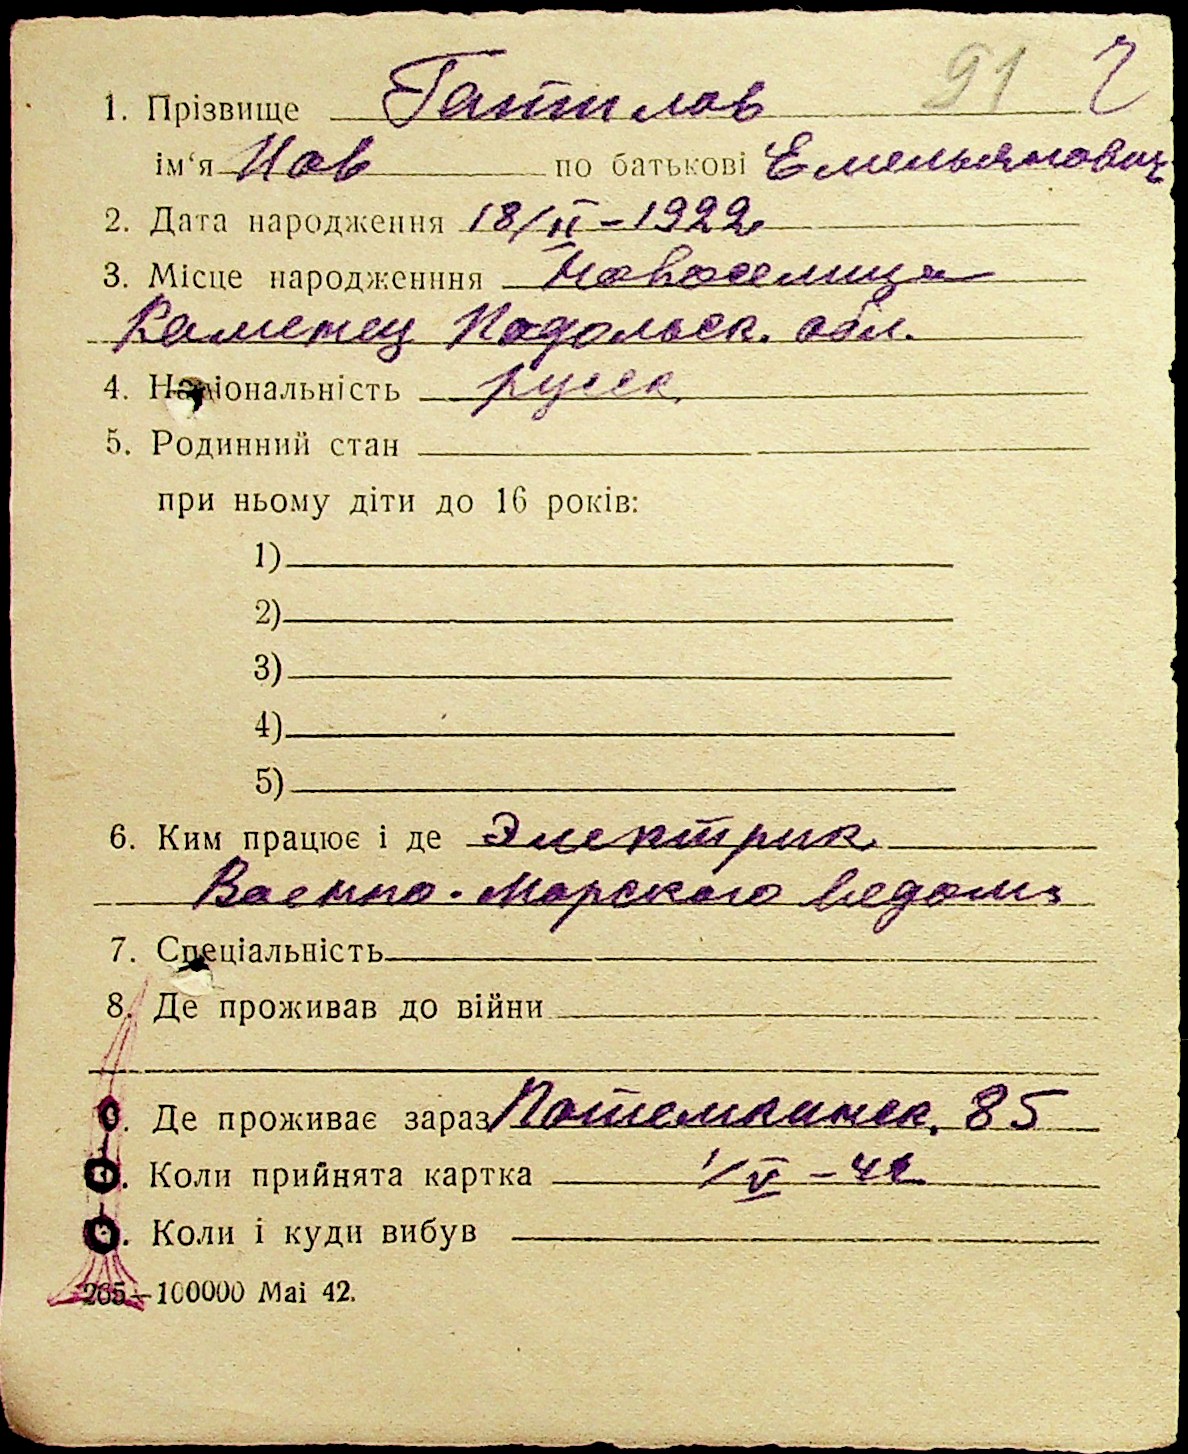 91 2
1. Прізвище Гатилов
ім‘я Иов по батькові Емельянович
2. Дата народження 18/II – 1922
3. Місце народженння Новоселица
Каменец Подольск. обл.
4. Національність русск.
5. Родинний стан
при ньому діти до 16 років:
1)
2)
3)
4)
5)
6. Ким працює і де Электрик
Военно-Морского ведом.
7. Спеціальність
8. Де проживав до війни
Де проживає зараз Потемкинск. 85
Коли прийнята картка 1/V – 42
Коли і куди вибув
265—100000 Mai 42.